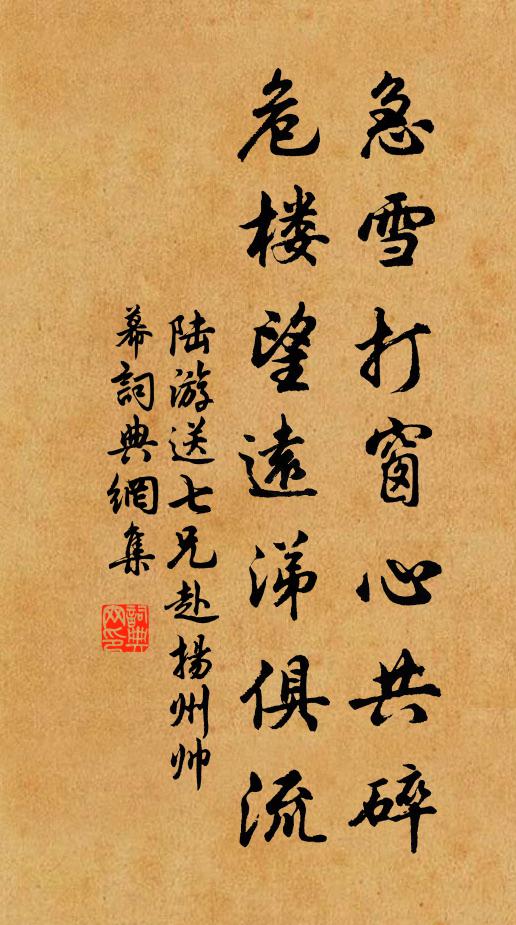 急雪打窗心共碎
危楼望遠涕俱流
陆游送七兄赴揚州帅
幕詞典網集
詞典
网印